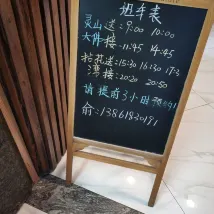 班车表
灵山送：9:00 10:00
大佛接：11:45 14:45
拈花送：15:30 16:30 17:3
湾接：20:20 20:50
请提前3小时预约！
俞：13861830191